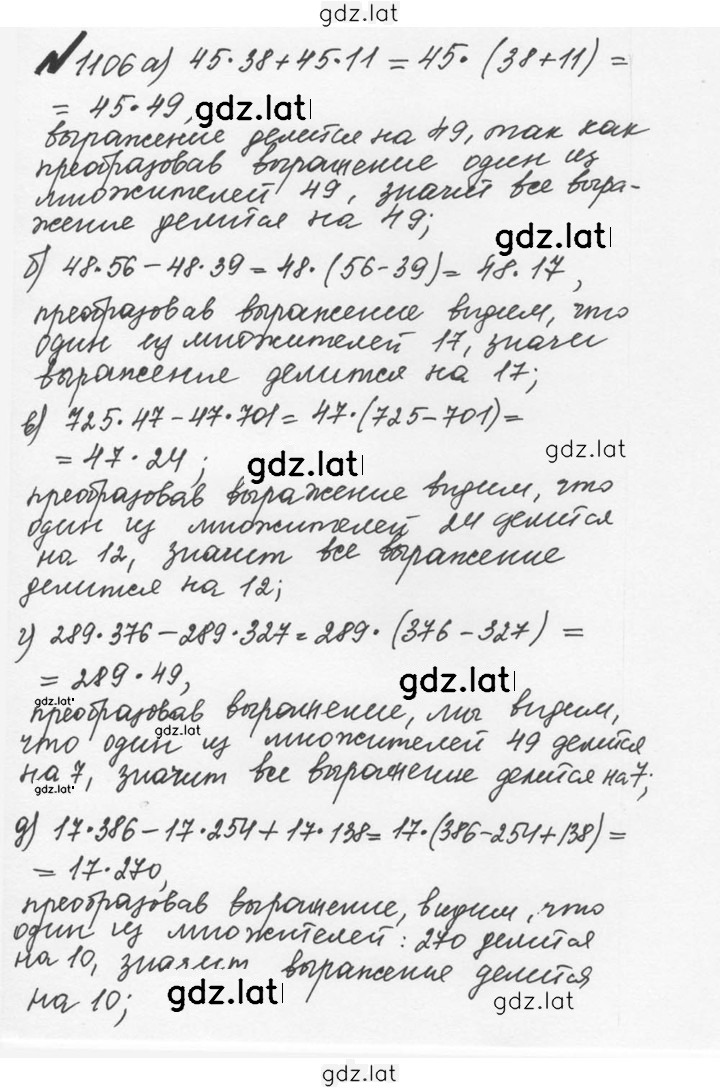 gdz.lat
№1106 а) 45·38+45·11 = 45·(38+11) =
= 45·49, gdz.lat
выражение делится на 49, так как
преобразовав выражение один из
множителей 49, значит все выра-
жение делится на 49;
gdz.lat
б) 48·56-48·39 = 48·(56-39) = 48·17,
преобразовав выражение видим, что
один из множителей 17, значи
выражение делится на 17;
в) 725·47-47·701 = 47·(725-701) =
= 47·24; gdz.lat gdz.lat
преобразовав выражение видим, что
один из множителей 24 делится
на 12, значит все выражение
делится на 12;
г) 289·376-289·327 = 289·(376-327) =
= 289·49, gdz.lat
gdz.lat
преобразовав выражение, мы видим,
gdz.lat
что один из множителей 49 делится
на 7, значит все выражение делится на 7;
gdz.lat
д) 17·386-17·254+17·138 = 17·(386-254+138) =
= 17·270,
преобразовав выражение, видим, что
один из множителей: 270 делится
на 10, значит выражение делится
на 10; gdz.lat gdz.lat
gdz.lat